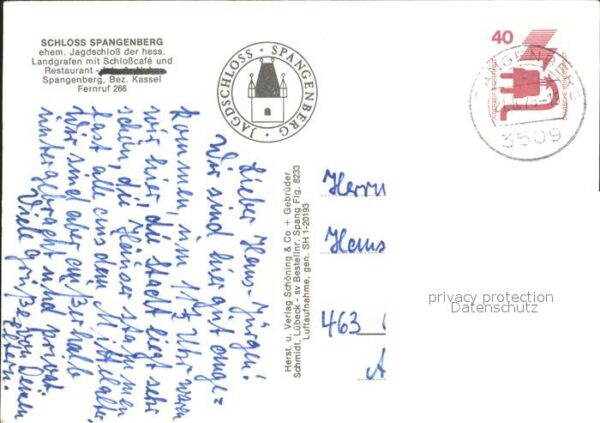 SCHLOSS SPANGENBERG
ehem. Jagdschloß der hess.
Landgrafen mit Schloßcafé und
Restaurant -
Spangenberg, Bez. Kassel
Fernruf 266
JAGDSCHLOSS · SPANGENBERG ·
40
SPANGENBERG
3509
Lieber Hans-Jürgen!
Wir sind hier gut ange=
kommen, um 11½ Uhr waren
wir hier, die Stadt liegt sehr
schön, die Häuser stammen
fast alle aus dem Mittelalter.
Wir sind aber außerhalb
untergebracht und privat.
Viele Grüße von Deinen
Eltern.
Herst. u. Verlag Schöning & Co + Gebrüder
Schmidt, Lübeck - sv Bestellnr. Spang Flg. 8233
Luftaufnahme, gen. SH 1-20193
Herrn
Hans
463
privacy protection
Datenschutz